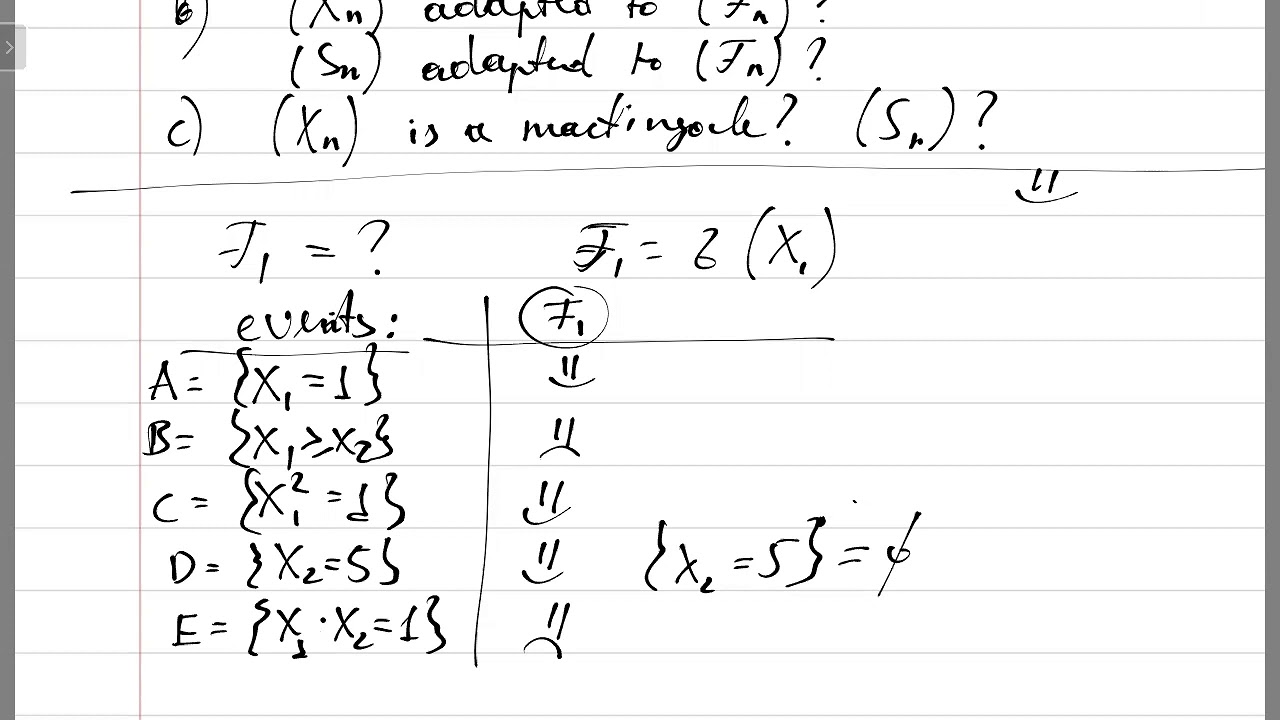 b) (Xₙ) adapted to (ℱₙ) ?
(Sₙ) adapted to (ℱₙ) ?
c) (Xₙ) is a martingale? (Sₙ) ?
ℱ₁ = ? ℱ₁ = σ (X₁)
events: ℱ₁
A = {X₁ = 1}
B = {X₁ ≥ X₂}
C = {X₁² = 1}
D = {X₂ = 5} {X₂ = 5} = ∅
E = {X₁ · X₂ = 1}